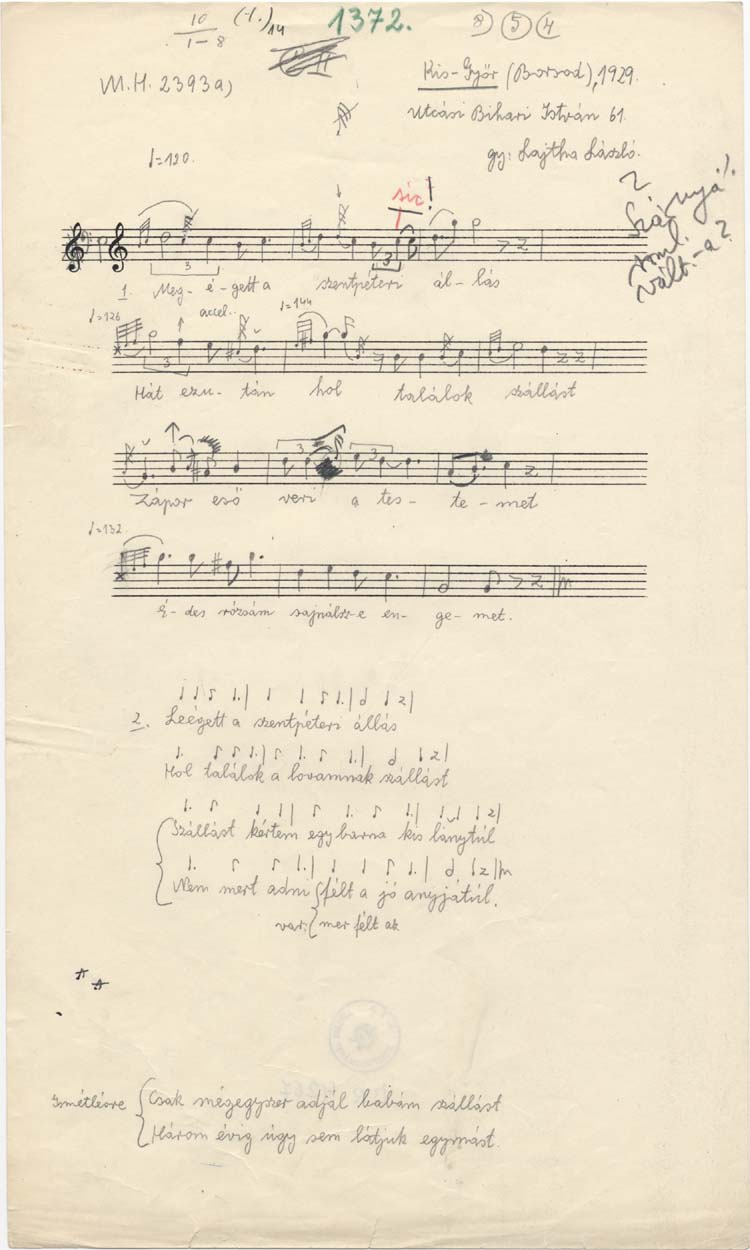 10
1-8
(-1.)14
1372.
8) 5 4
M.H. 2393a)
Kis-Győr (Borsod), 1929.
Utcási Bihari István 61.
♩=120.
gy: Lajtha László.
sic!
?
1. Meg-é-gett a szentpéteri ál-lás
accel..
♩=126
♩=144
Hát ezu-tán hol találok szállást
3
Zápor eső veri a tes-te-met
♩=132
É-des rózsám sajnálsz-e en-ge-met.
2. Leégett a szentpéteri állás
Hol találok a lovamnak szállást
Szállást kértem egy barna kis lánytúl
Nem mert adni félt a jó anyjátúl.
var. mer félt az
Ismétlésre Csak mégegyszer adjál babám szállást
Három évig úgy sem látjuk egymást.